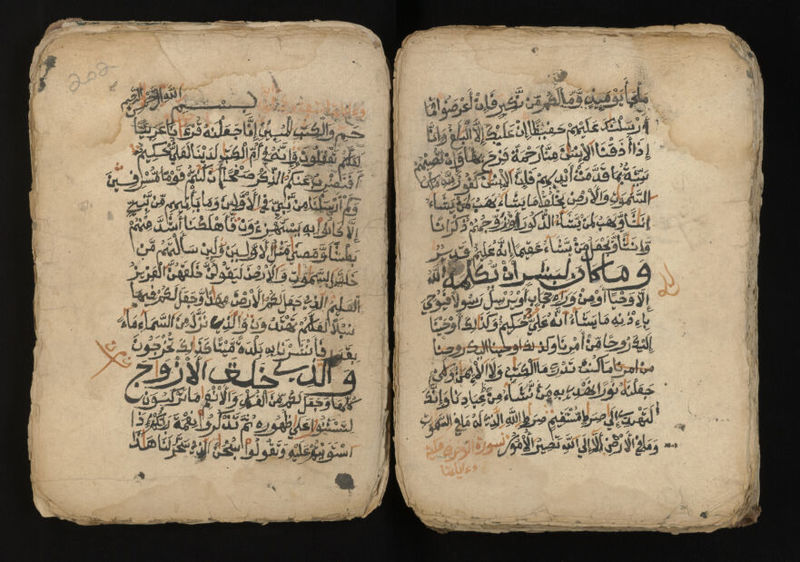 ملجأ يومئذ وما لكم من نكير فإن أعرضوا فما
أرسلنك عليهم حفيظا إن عليك إلا البلغ وإنا
إذا أذقنا الإنسن منا رحمة فرح بها وإن تصبهم
سيئة بما قدمت أيديهم فإن الإنسن كفور لله ملك
السموت والأرض يخلق ما يشاء يهب لمن يشاء
إنثا ويهب لمن يشاء الذكور أو يزوجهم ذكرانا
وإنثا ويجعل من يشاء عقيما إنه عليم قدير
وما كان لبشر أن يكلمه الله
إلا وحيا أو من وراء حجاب أو يرسل رسولا فيوحي
بإذنه ما يشاء إنه علي حكيم وكذلك أوحينا
إليك روحا من أمرنا وكذلك أوحينا إليك روحا
من أمرنا ما كنت تدري ما الكتب ولا الإيمن ولكن
جعلنه نورا نهدي به من نشاء من عبادنا وإنك
لتهدي إلى صرط مستقيم صرط الله الذي له ما في السموت
وما في الأرض ألا إلى الله تصير الأمور سورة الزخرف مكية
202
بسم الله الرحمن الرحيم
حم والكتب المبين إنا جعلنه قرءنا عربيا
لعلكم تعقلون وإنه في أم الكتب لدينا لعلي حكيم
أفنضرب عنكم الذكر صفحا أن كنتم قوما مسرفين
وكم أرسلنا من نبي في الأولين وما يأتيهم من نبي
إلا كانوا به يستهزءون فأهلكنا أشد منهم
بطشا ومضى مثل الأولين ولئن سألتهم من
خلق السموت والأرض ليقولن خلقهن العزيز
العليم الذي جعل لكم الأرض مهدا وجعل لكم فيها
سبلا لعلكم تهتدون والذي نزل من السماء ماء
بقدر فأنشرنا به بلدة ميتا كذلك تخرجون
والذي خلق الأزوج
كلها وجعل لكم من الفلك والأنعم ما تركبون
لتستووا على ظهوره ثم تذكروا نعمة ربكم إذا
استويتم عليه وتقولوا سبحن الذي سخر لنا هذا